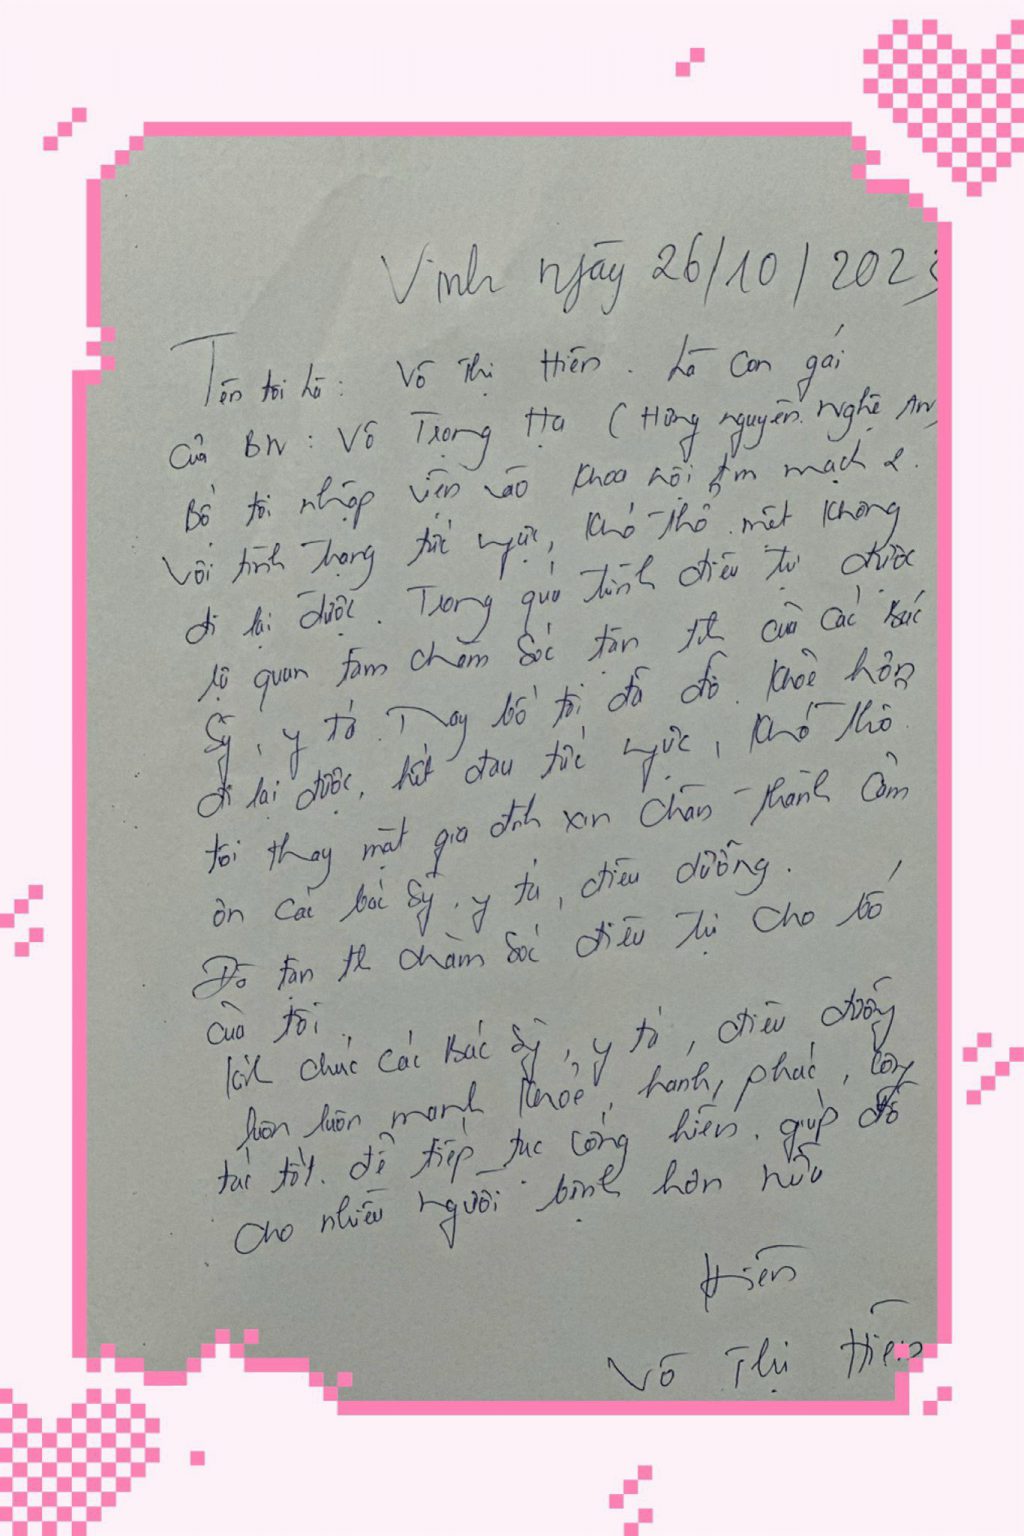 Vinh ngày 26/10/2023
Tên tôi là: Võ Thị Hiền. Là con gái
của BN: Võ Trọng Hạ (Hưng nguyên. Nghệ An)
Bố tôi nhập viện vào khoa nội tim mạch 2.
Với tình trạng tức ngực, khó thở mệt không
đi lại được. Trong quá trình điều trị được
sự quan tâm chăm sóc tận tì của các bác
sỹ, y tá. Nay bố tôi đã đỡ. khỏe hơn
đi lại được, hết đau tức ngực, khó thở
tôi thay mặt gia đình xin chân thành cảm
ơn các bác sỹ, y tá, điều dưỡng.
Đã tận tì chăm sóc điều trị cho bố
của tôi.
kính chúc các bác sỹ, y tá, điều dưỡng
luôn luôn mạnh khỏe, hạnh phúc, công
tác tốt. để tiếp tục cống hiến. giúp đỡ
cho nhiều người bệnh hơn nữa
Hiền
Võ Thị Hiền